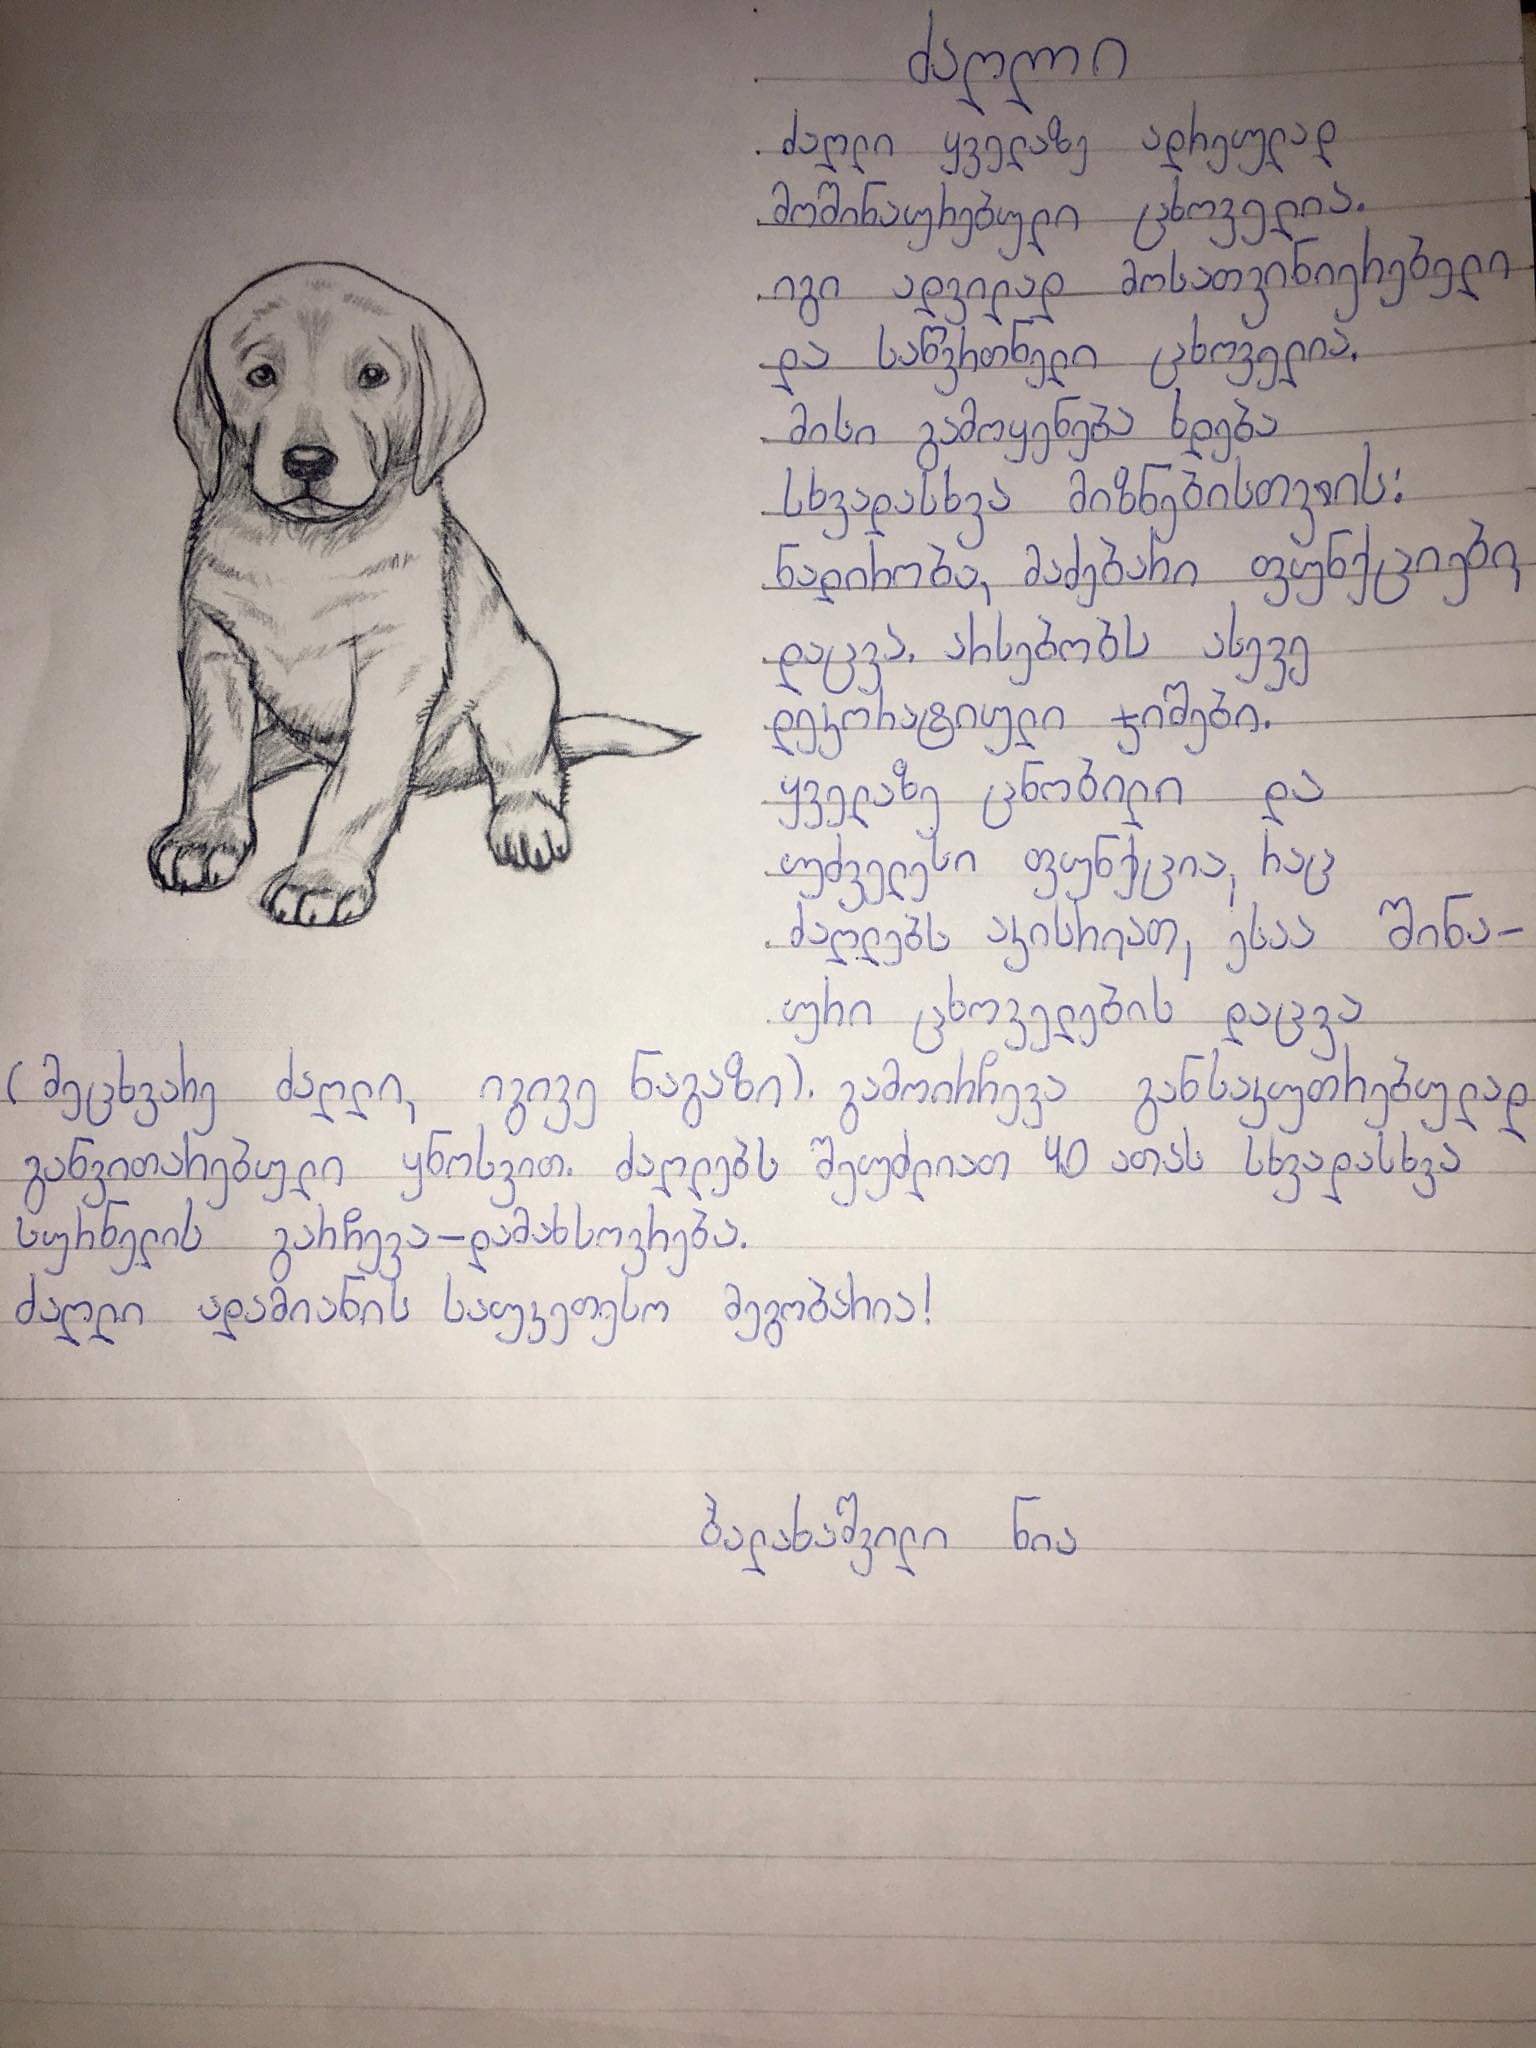 ძაღლი
ძაღლი ყველაზე ადრეულად
მოშინაურებული ცხოველია.
იგი ადვილად მოსათვინიერებელი
და საწვრთნელი ცხოველია.
მისი გამოყენება ხდება
სხვადასხვა მიზნებისთვის:
ნადირობა, მაძებარი ფუნქციები,
დაცვა. არსებობს ასევე
დეკორატიული ჯიშები.
ყველაზე ცნობილი და
უძველესი ფუნქცია, რაც
ძაღლებს აკისრიათ, ესაა შინა-
ური ცხოველების დაცვა
(მეცხვარე ძაღლი, იგივე ნაგაზი). გამოირჩევა განსაკუთრებულად
განვითარებული ყნოსვით. ძაღლებს შეუძლიათ 40 ათას სხვადასხვა
სურნელის გარჩევა-დამახსოვრება.
ძაღლი ადამიანის საუკეთესო მეგობარია!
ბალახაშვილი ნია